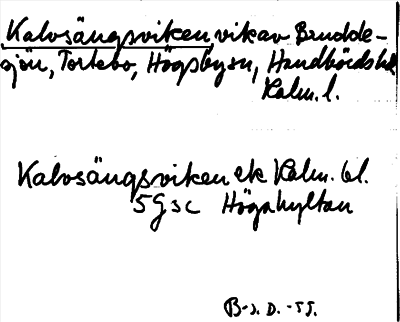 Kalvsängsviken, vik av Brudde-
sjön, Torlebo, Högsbysn, Handbördshd
Kalm. l.
Kalvsängsviken ek Kalm. bl.
5G5c Högahyltan
B-s. D. -55.